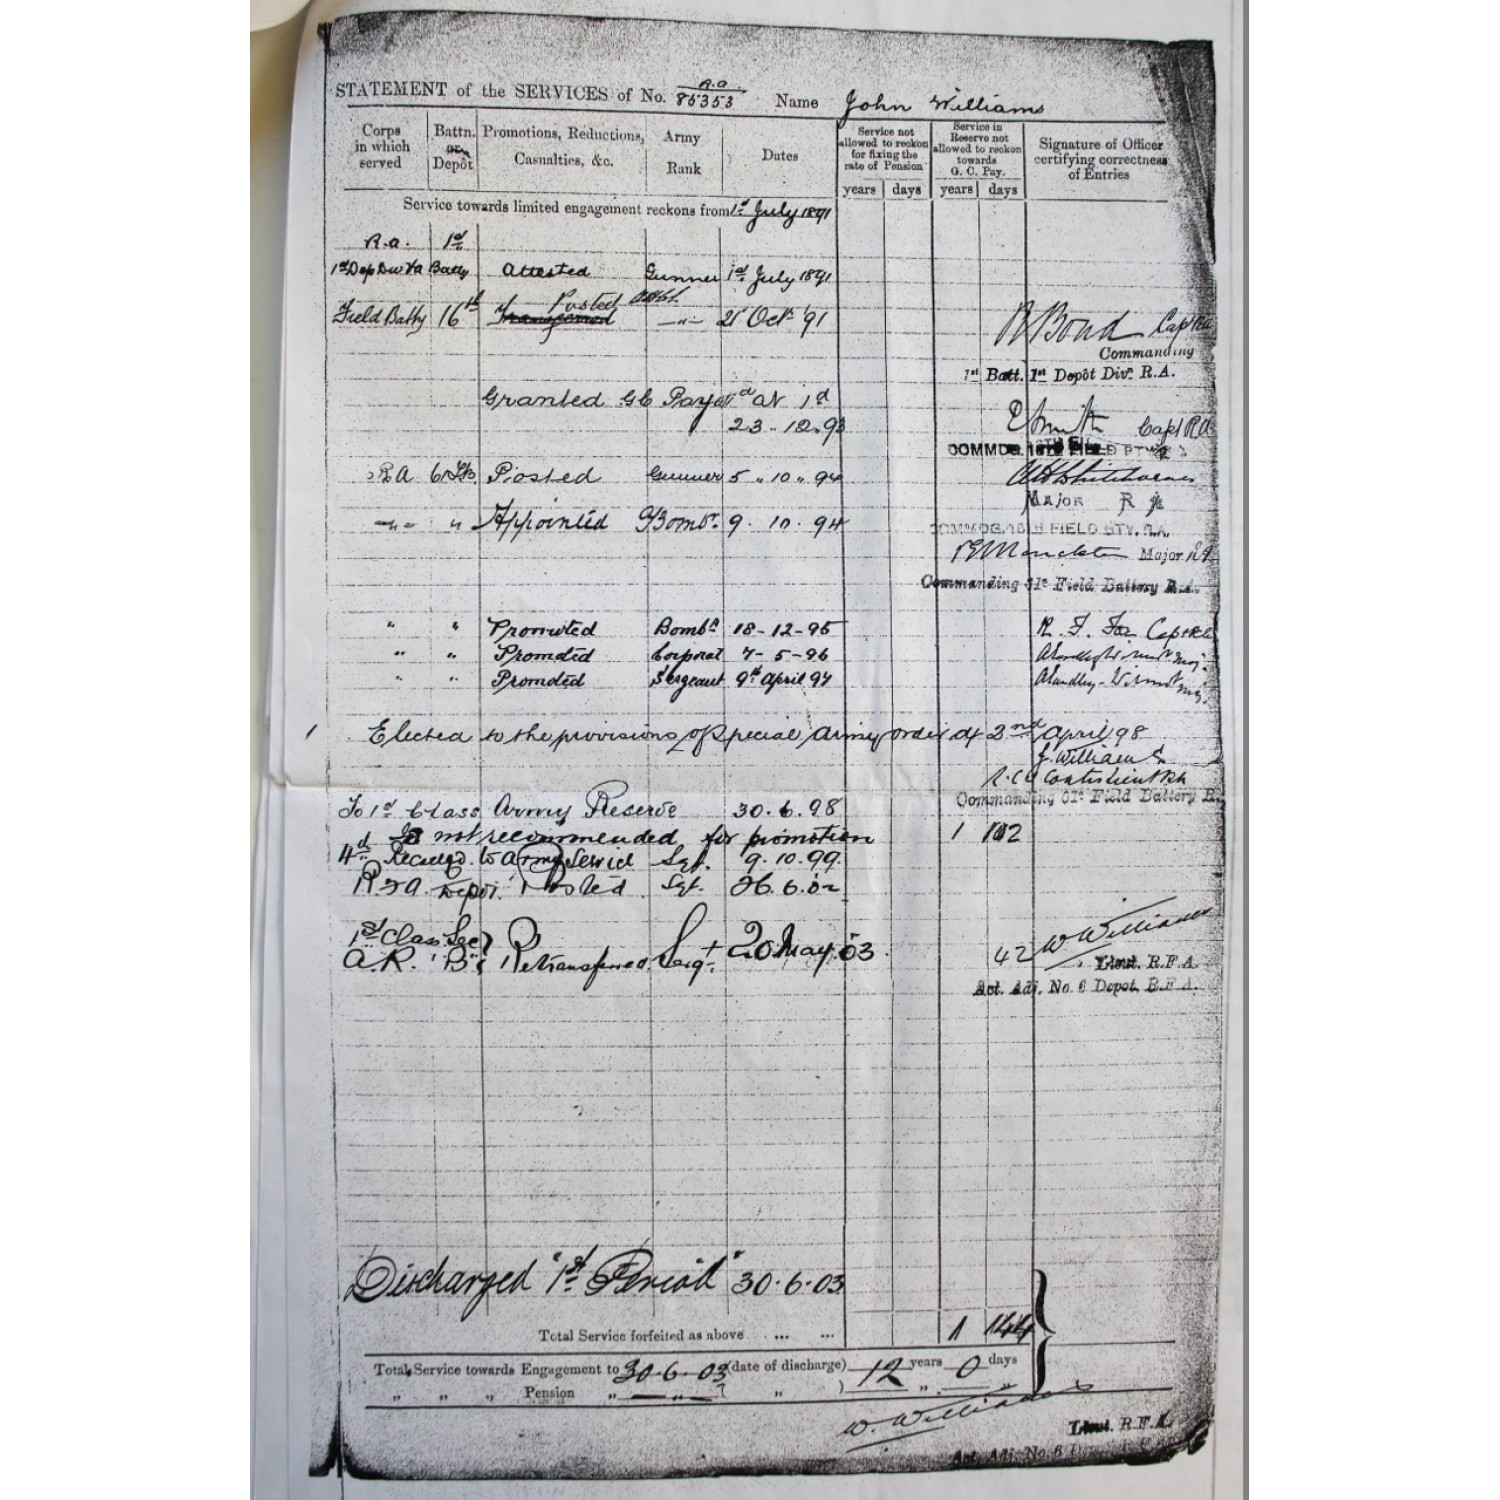 STATEMENT of the SERVICES of No. R.A. 85353 Name John Williams
Corps in which served
Battn. or Depôt
Promotions, Reductions, Casualties, &c.
Army Rank
Dates
Service not allowed to reckon for fixing the rate of Pension
years days
Service in Reserve not allowed to reckon towards G. C. Pay.
years days
Signature of Officer certifying correctness of Entries
Service towards limited engagement reckons from 1st July 1891
R.a. 1st
Batty Attested Gunner 1st July 1891
Field Batty 16th Transferred Posted —"— 21 Oct 91
R Bond Capt RA
Commanding
1st Batt. 1st Depôt Divn R.A.
Granted GC Pay at 1d
23.12.93
Smith Capt RA
COMMDG. 16TH FIELD BTY
RA 61 Posted Gunner 5 " 10 " 94
Major R A
—"— " Appointed A/Bombr 9. 10. 94
COMMDG. 16TH FIELD BTY. R.A.
Major RA
Commanding 61st Field Battery R.A.
" " Promoted Bombr 18-12-95 R. F. Fox Capt RA
" " Promoted Corporal 7-5-96
" " Promoted Sergeant 9th April 97
1 Elected to the provisions of Special Army Order of 2nd April 98
J. Williams
Commanding 61st Field Battery R.
To 1st Class Army Reserve 30.6.98
Is not recommended for promotion 1 102
Recalled to Army Service Sgt. 9.10.99.
R F A. Depot Posted Sgt. 26.6.02
1st Class Sec
A.R. "B" Retransferred Sergt 20 May 03. 42 W Williams
Lieut. R.F.A.
Act. Adj. No. 6 Depot, R.F.A.
Discharged "1st Period" 30.6.03
Total Service forfeited as above ... ... 1 144
Total Service towards Engagement to 30.6.03 (date of discharge) 12 years 0 days
" " " Pension " —"— ( " ) " "
W. Williams
Lieut. R.F.A.
Act. Adj. No. 6